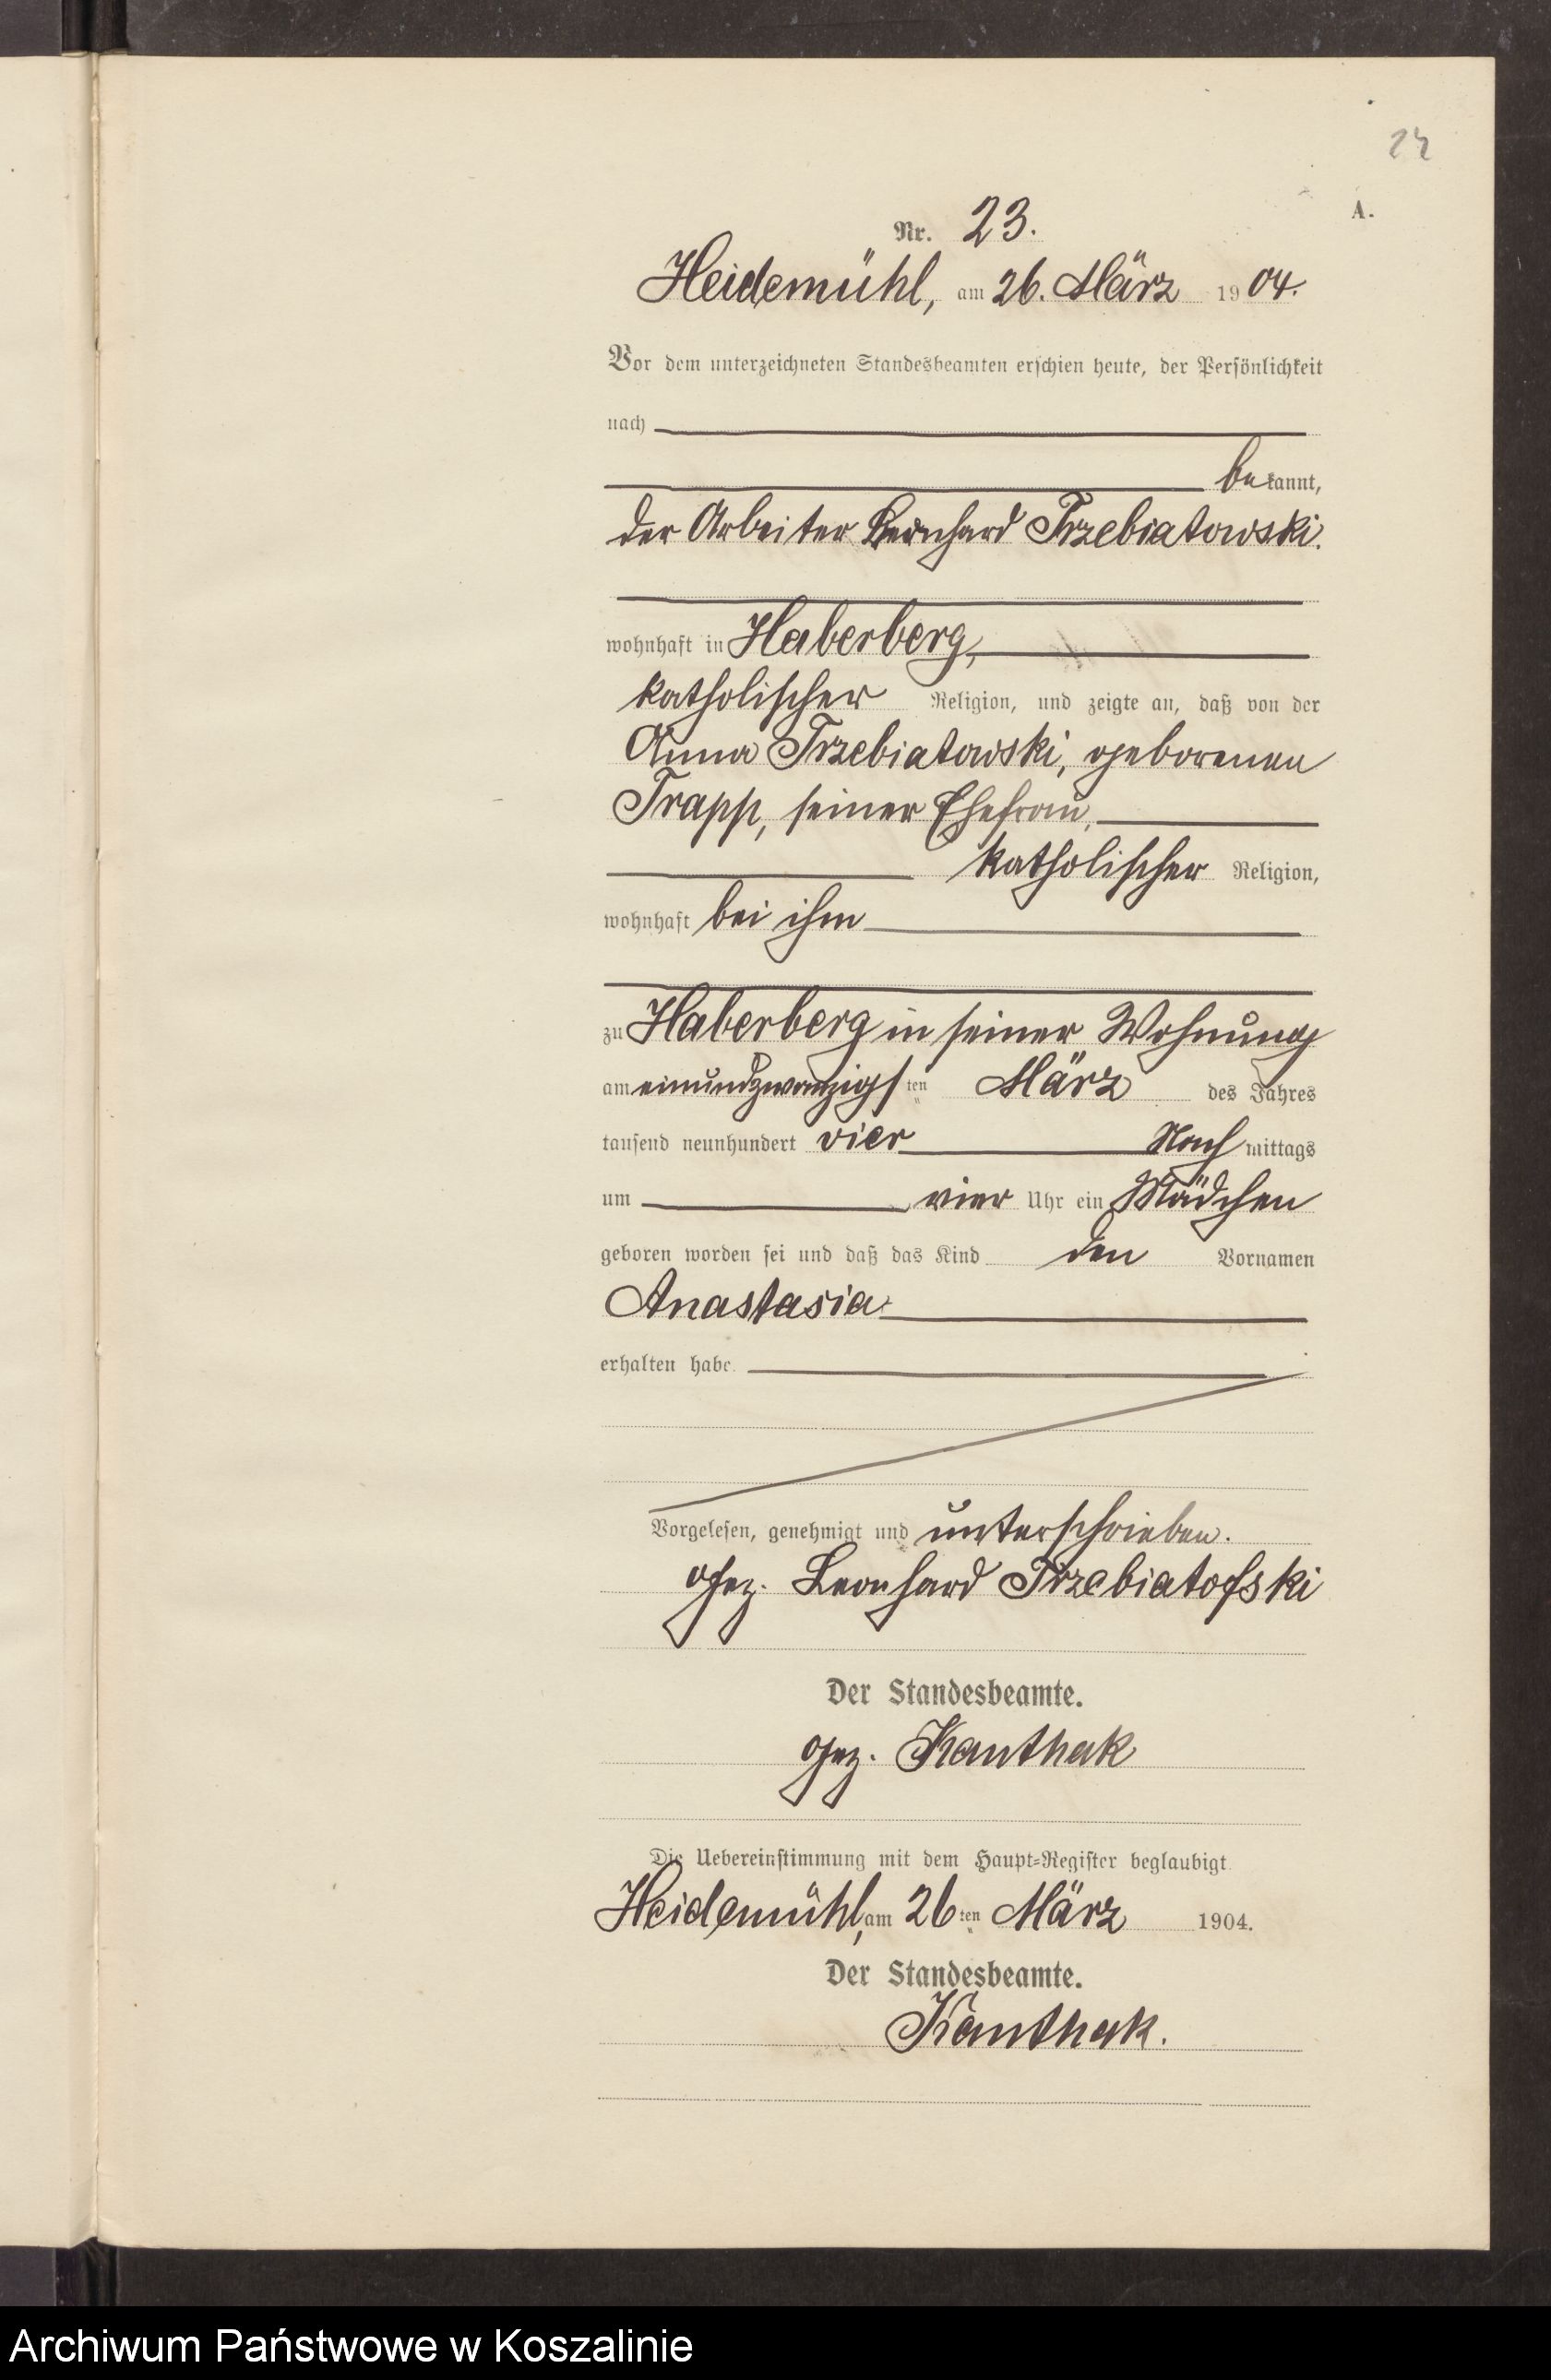 24
A.
Nr. 23.
Heidemühl, am 26. März 1904.
Vor dem unterzeichneten Standesbeamten erschien heute, der Persönlichkeit
nach
bekannt,
der Arbeiter Bernhard Trzebiatowski.
wohnhaft in Haberberg,
katholischer Religion, und zeigte an, daß von der
Anna Trzebiatowski, geborenen
Trapp, seiner Ehefrau,
katholischer Religion,
wohnhaft bei ihm
zu Haberberg in seiner Wohnung
am einundzwanzigsten März des Jahres
tausend neunhundert vier Nachmittags
um vier Uhr ein Mädchen
geboren worden sei und daß das Kind den Vornamen
Anastasia
erhalten habe.
Vorgelesen, genehmigt und unterschrieben.
gez. Bernhard Trzebiatofski
Der Standesbeamte.
gez. Kanthak
Die Uebereinstimmung mit dem Haupt-Register beglaubigt
Heidemühl, am 26ten März 1904.
Der Standesbeamte.
Kanthak.
Archiwum Państwowe w Koszalinie